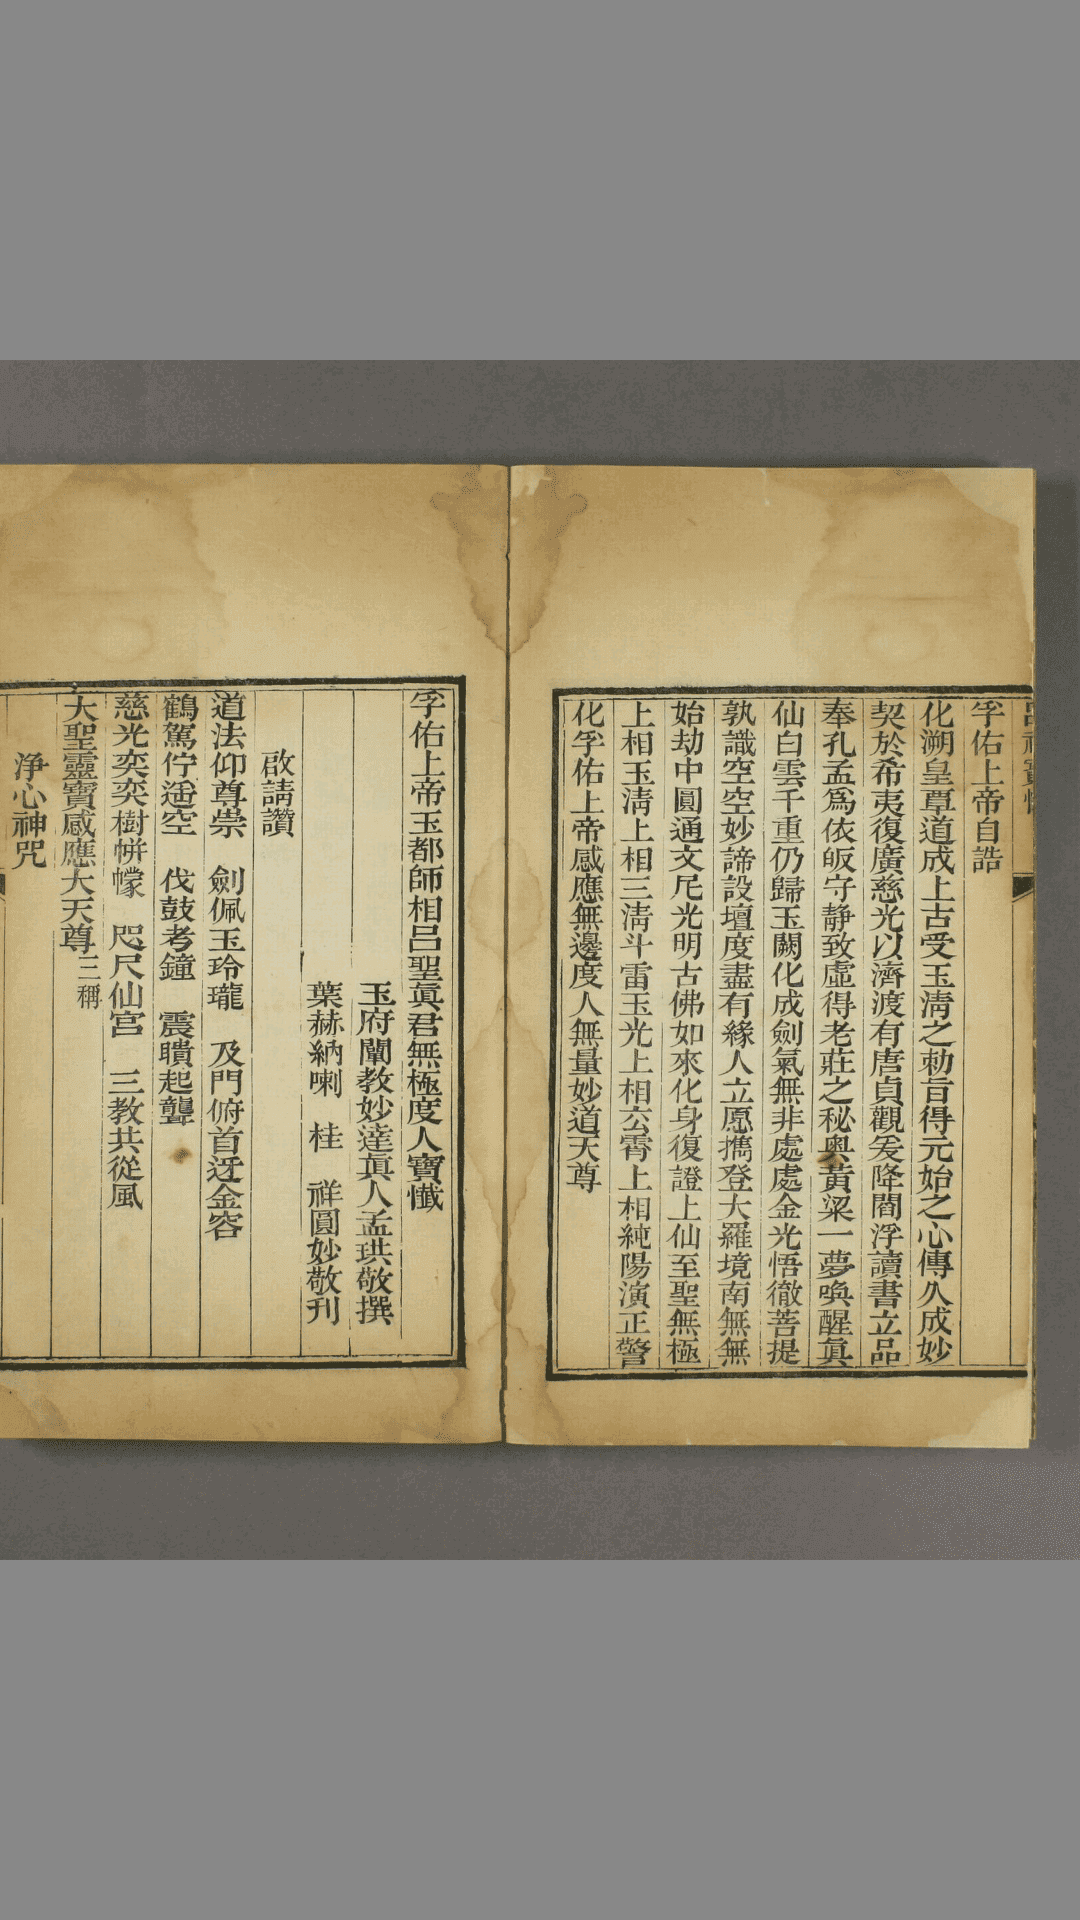 孚佑上帝自誥
化溯皇覃道成上古受玉淸之勅旨得元始之心傳久成妙
契於希夷復廣慈光以濟渡有唐貞觀爰降閻浮讀書立品
奉孔孟爲依皈守静致虛得老莊之秘奥黃粱一夢喚醒眞
仙白雲千重仍歸玉闕化成劍氣無非處處金光悟徹菩提
孰識空空妙諦設壇度盡有緣人立愿擕登大羅境南無無
始劫中圓通文尼光明古佛如來化身復證上仙至聖無極
上相玉淸上相三淸斗雷玉光上相玄霄上相純陽演正警
化孚佑上帝感應無邊度人無量妙道天尊
孚佑上帝玉都師相吕聖眞君無極度人寶懺
玉府闡教妙達眞人孟珙敬撰
葉赫納喇　桂　祥圓妙敬刋
啟請讚
道法仰尊崇　劍佩玉玲瓏　及門俯首迓金容
鶴駕佇遥空　伐鼓考鐘　震聵起聾
慈光奕奕樹帡幪　咫尺仙宫　三教共從風
大聖靈寶感應大天尊三稱
浄心神咒